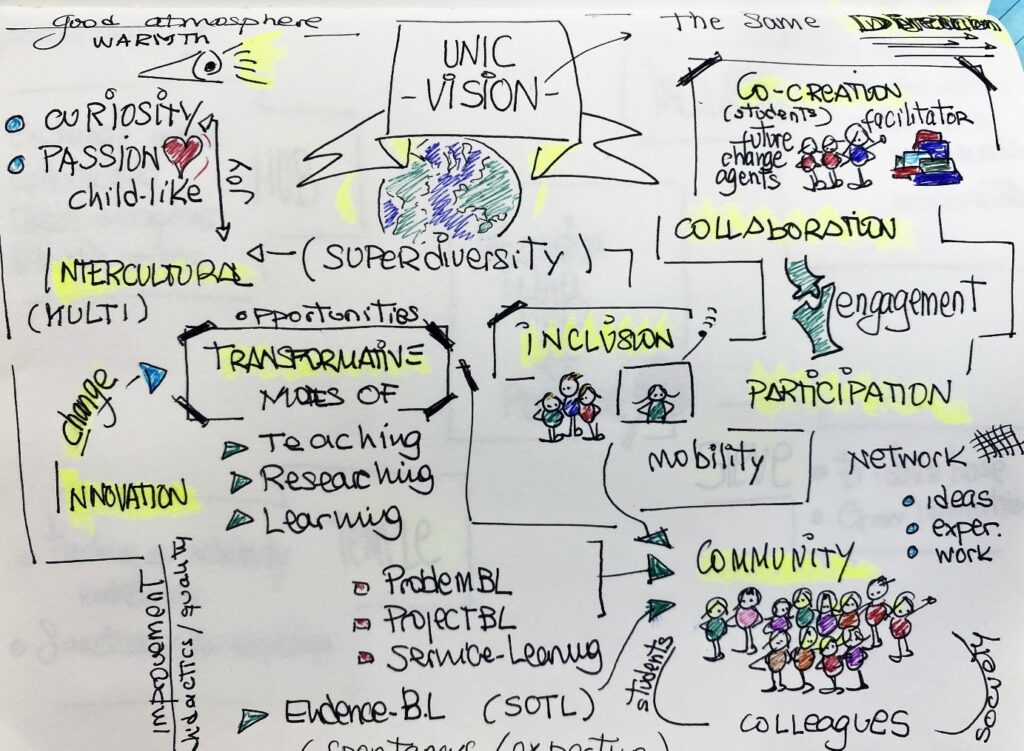 good atmosphere
WARMTH
CURIOSITY
PASSION
child-like
JOY
UNIC
- VISION -
The Same
Direction
CO-CREATION
(students)
future
change
agents
facilitator
COLLABORATION
engagement
(SUPERdiversity)
INTERCULTURAL
(MULTI)
opportunities
TRANSFORMATIVE
MODES OF
Teaching
Researching
Learning
change
INNOVATION
INCLUSION
mobility
PARTICIPATION
NETWORK
ideas
exper.
work
COMMUNITY
ProblemBL
ProjectBL
Service-Learning
Evidence-BL (SOTL)
students
colleagues
society
IMPROVEMENT
didactics / quality